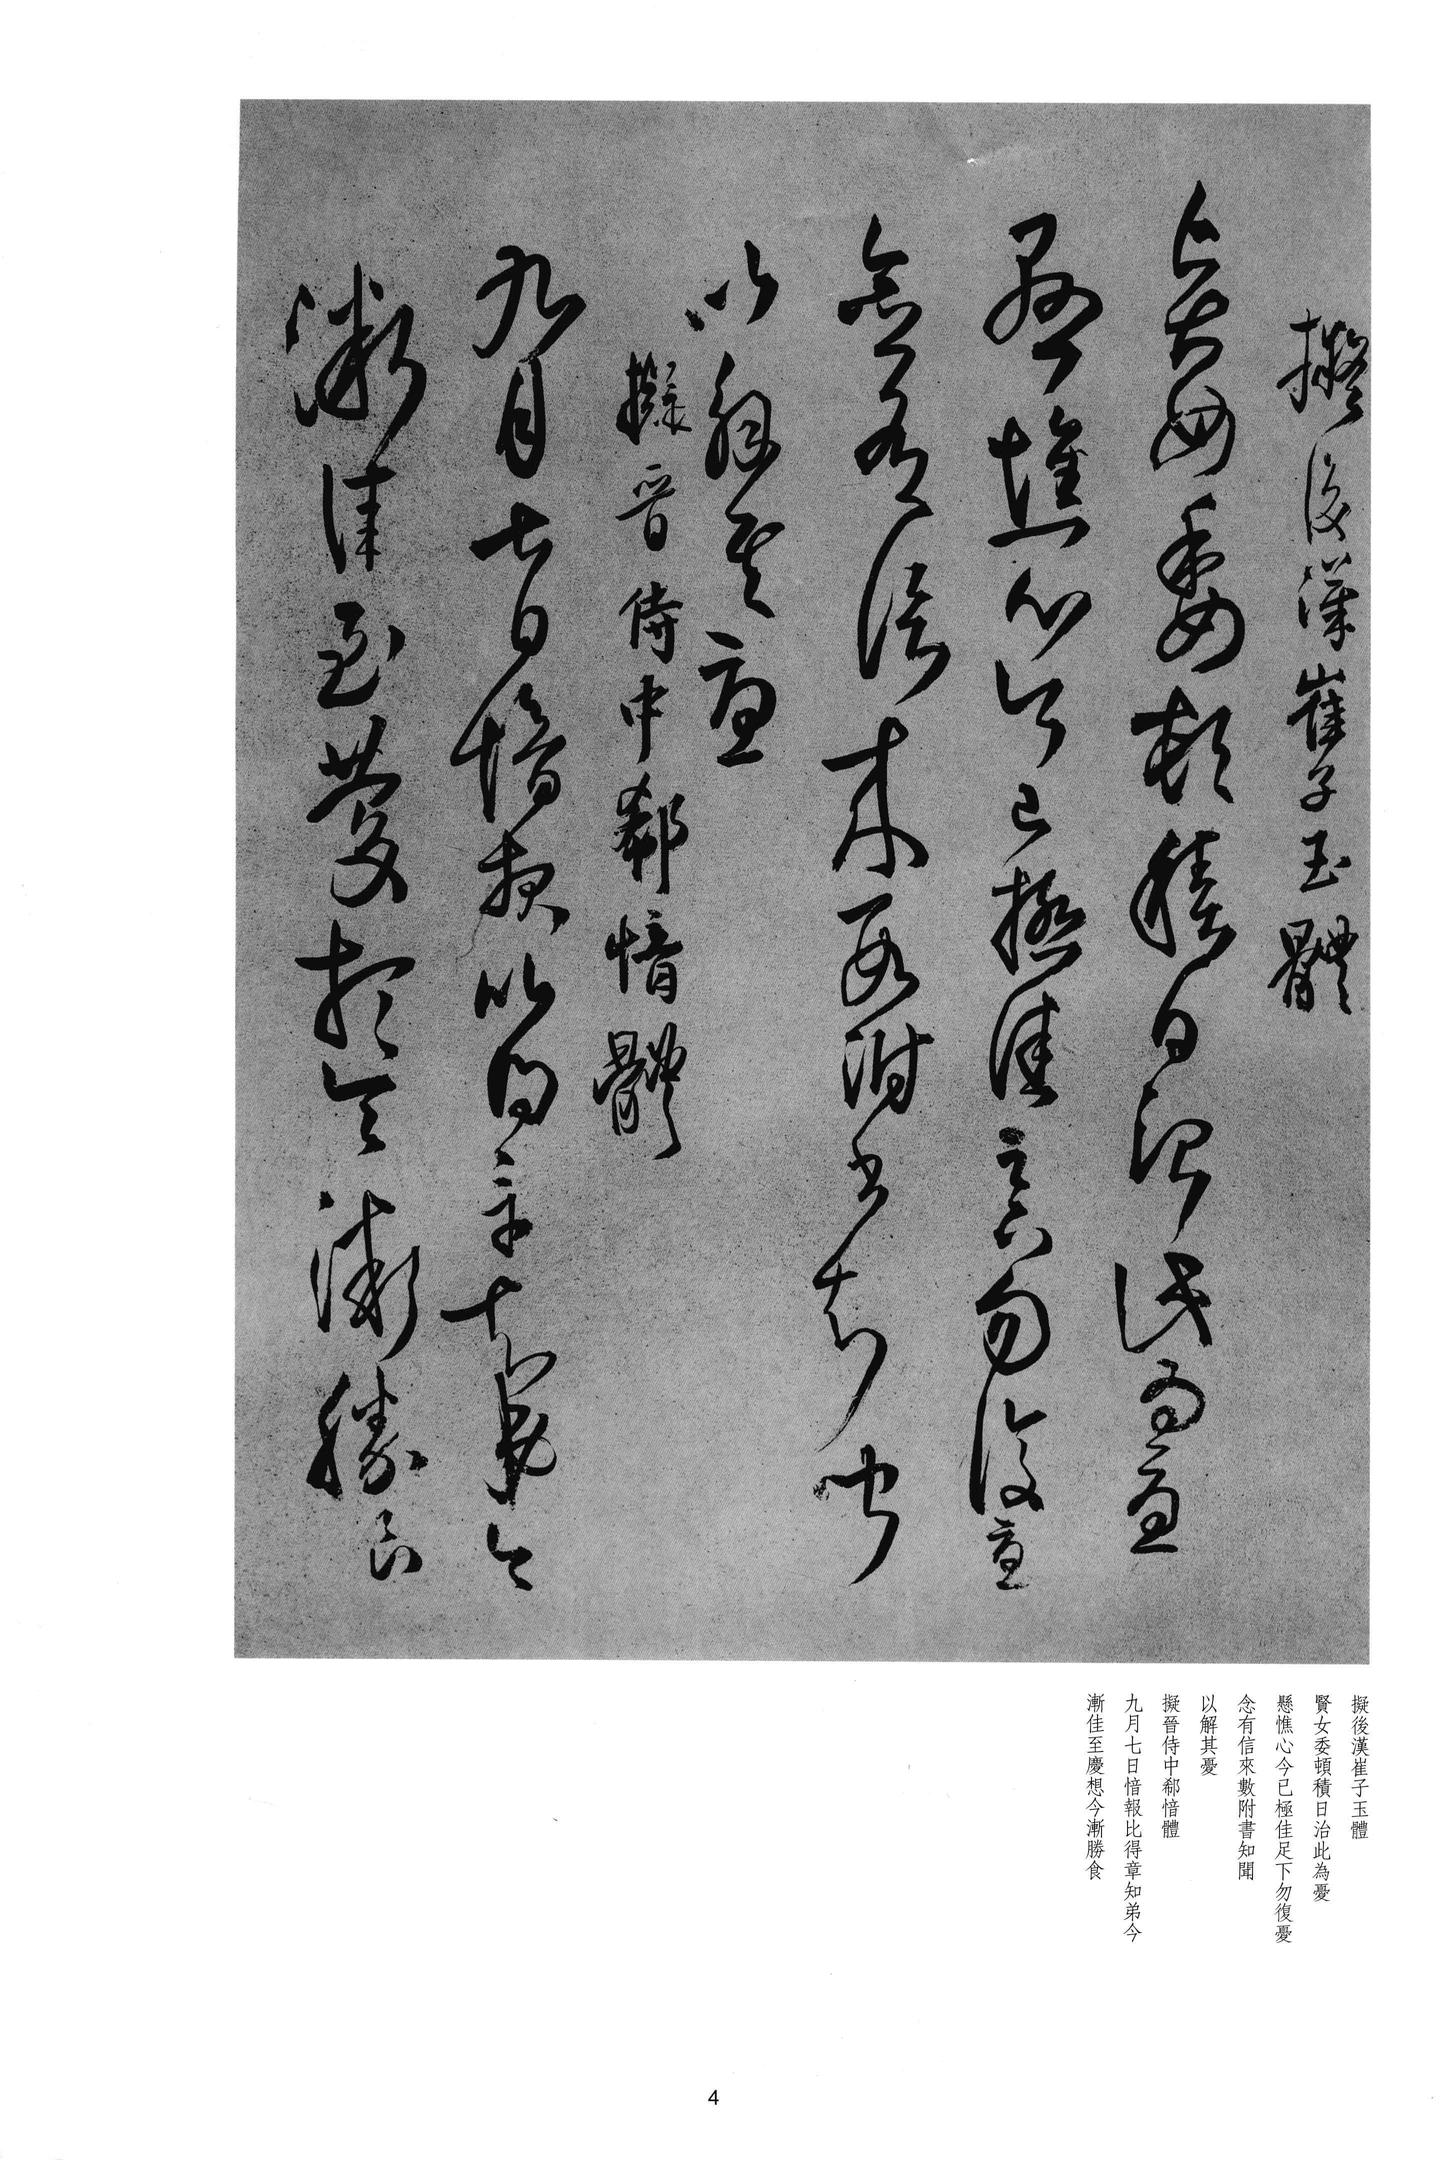 擬後漢崔子玉體
賢女委頓積日治此為憂
懸憔心今已極佳足下勿復憂
念有信來數附書知聞
以解其憂
擬晉侍中郗愔體
九月七日愔報比得章知弟今
漸佳至慶想今漸勝食
擬後漢崔子玉體
賢女委頓積日治此為憂
懸憔心今已極佳足下勿復憂
念有信來數附書知聞
以解其憂
擬晉侍中郗愔體
九月七日愔報比得章知弟今
漸佳至慶想今漸勝食
4